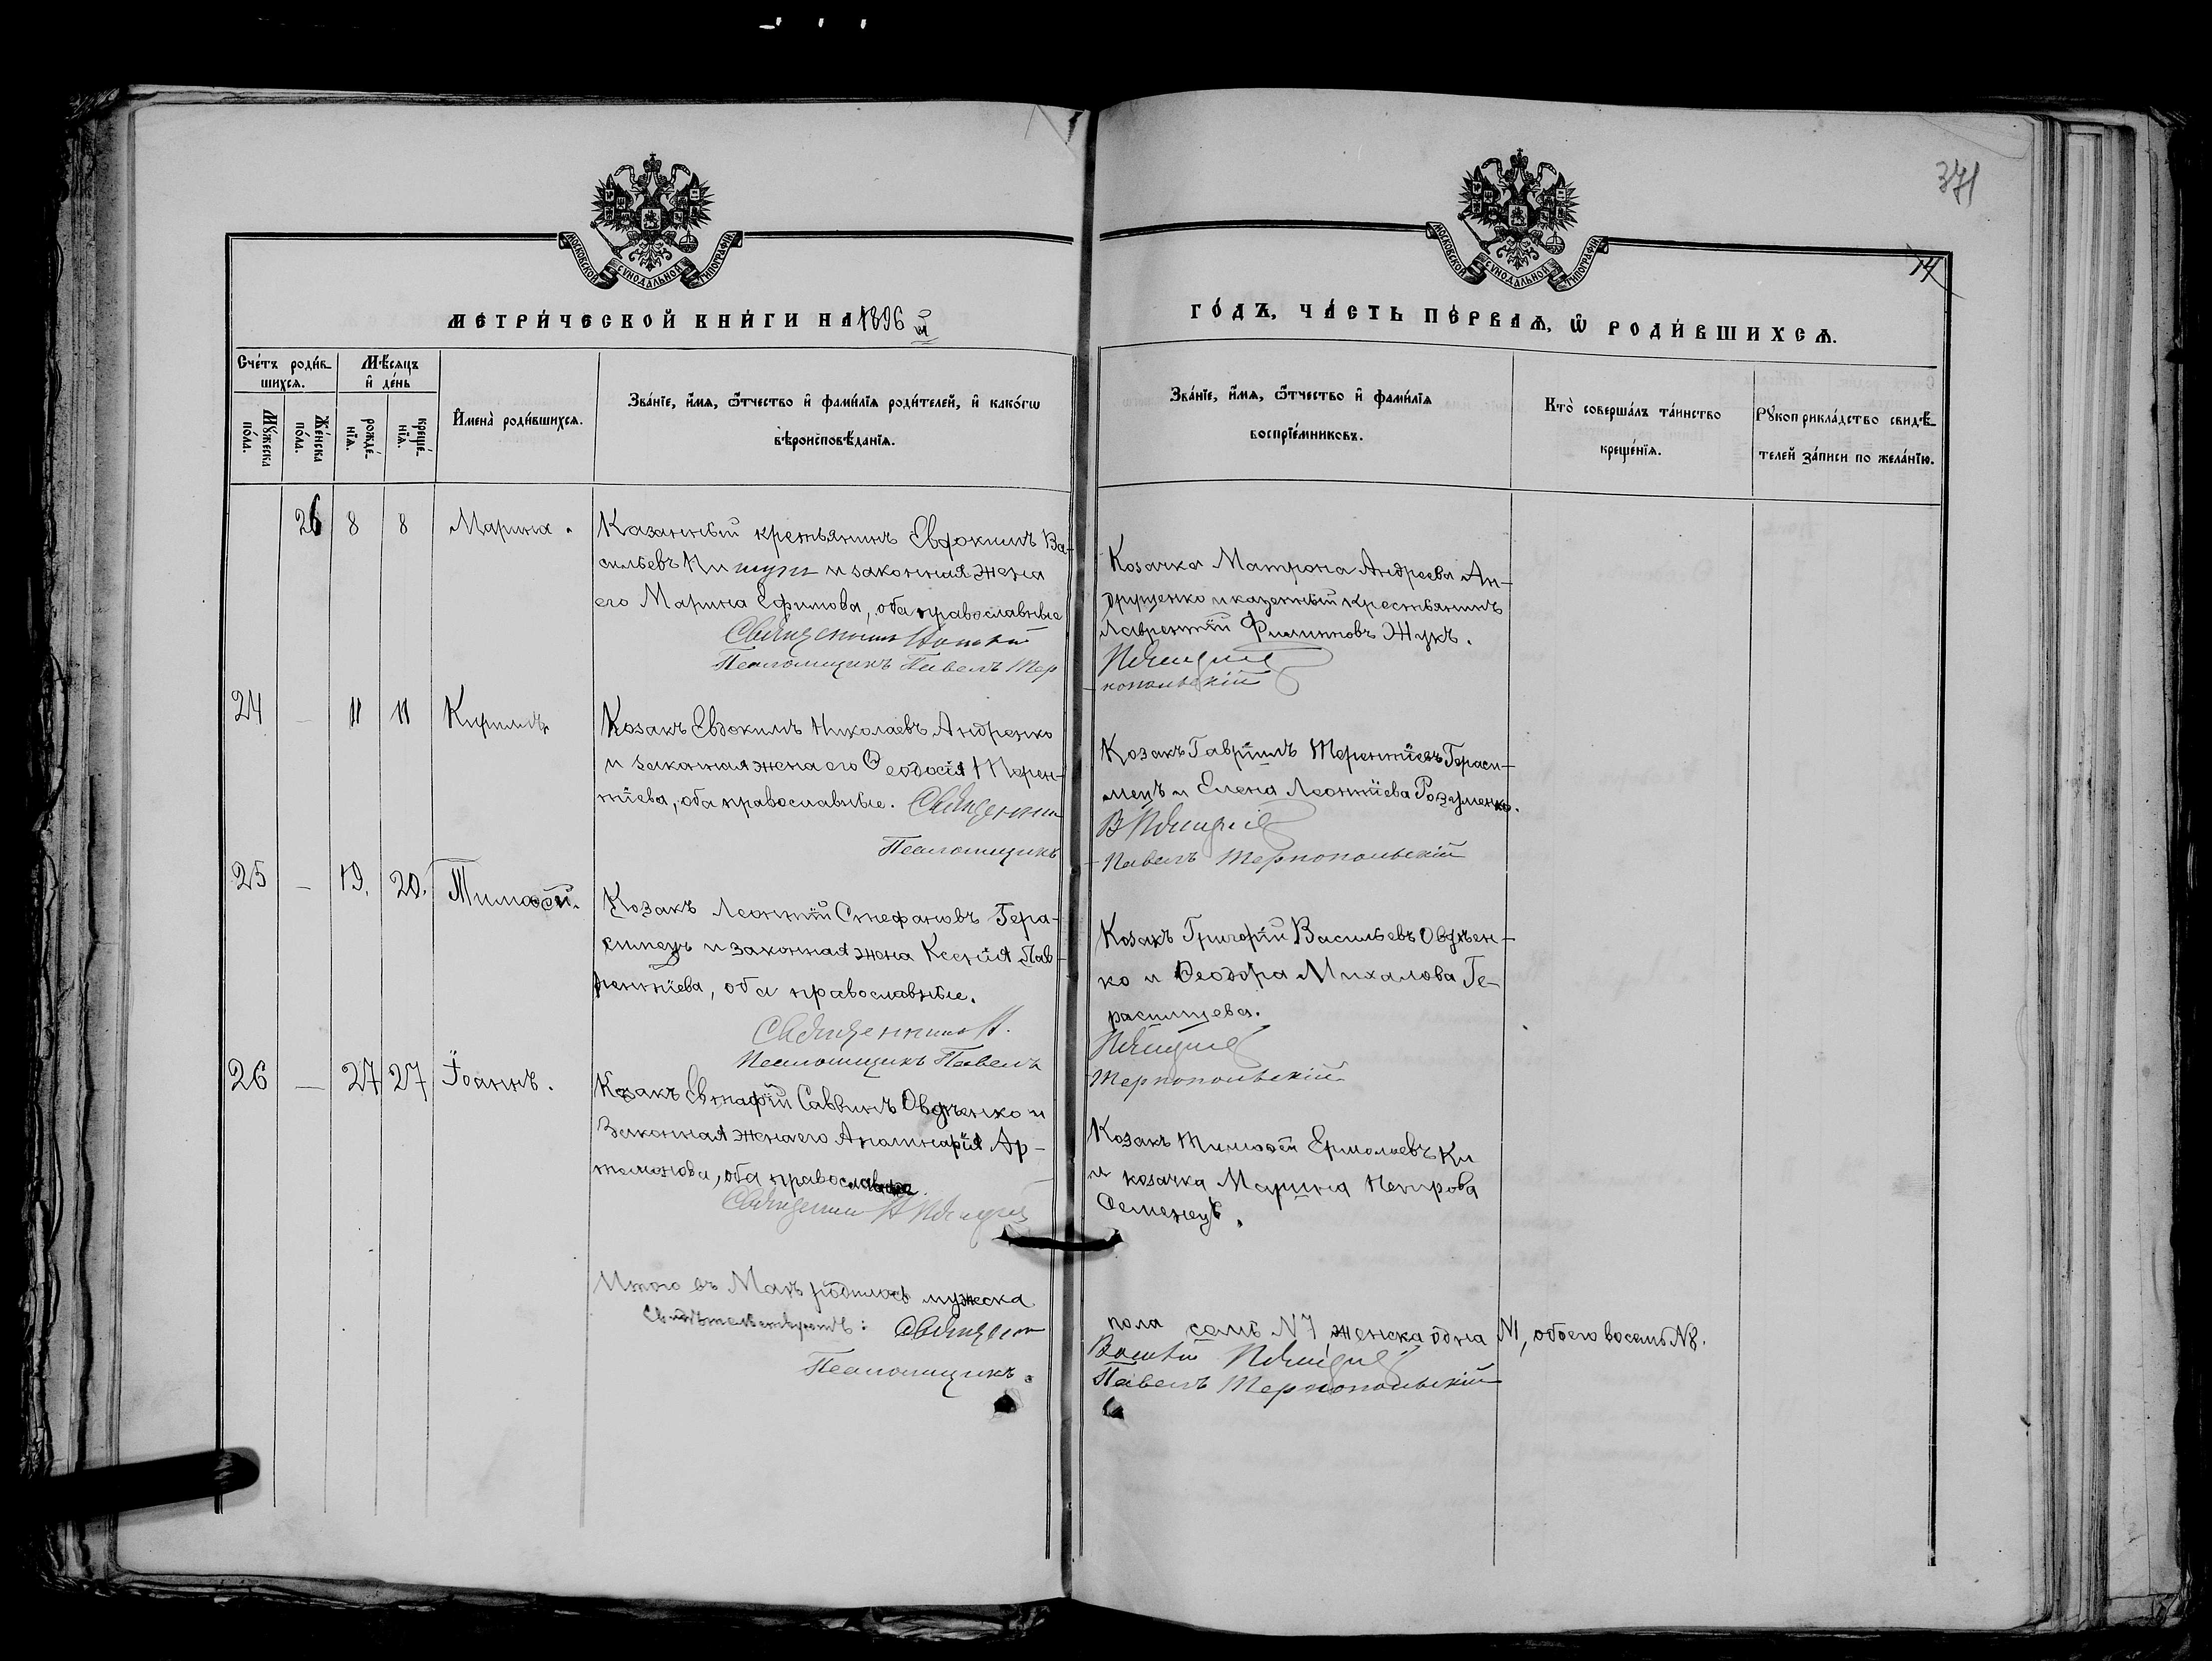 371
14
МОСКОВСКОЙ СѴНОДАЛЬНОЙ ТИПОГРАФІИ
МОСКОВСКОЙ СѴНОДАЛЬНОЙ ТИПОГРАФІИ
МЕТРИ́ЧЕСКОЙ КНИ́ГИ НА 1896 й
ГО́ДЪ, ЧА́СТЬ ПЕ́РВАѦ, Ѡ҆ РОДИ́ВШИХСѦ.
Сче́тъ роди́в-
шихсѧ.
Мꙋ́жеска
по́ла.
Же́нска
по́ла.
Мѣ́сѧцъ
и҆ де́нь
рожде́-
нїѧ.
креще́-
нїѧ.
И҆мена̀ роди́вшихсѧ.
Зва́нїе, и҆́мѧ, ѻ҆́тчество и҆ фами́лїѧ роди́телей, и҆ како́гѡ
вѣроисповѣ́данїѧ.
Зва́нїе, и҆́мѧ, ѻ҆́тчество и҆ фами́лїѧ
воспрїе́мниковъ.
Кто̀ соверша́лъ та́инство
креще́нїѧ.
Рꙋкоприкла́дство свидѣ́-
телей за́писи по жела́нїю.
26 8 8 Марина.
Казанный крестьянинъ Евдокимъ Ва-
сильевъ и законная жена
его Марина Ефимова, оба православные
Священникъ
Псаломщикъ Павелъ Тер
Козачка Матрона Андреева Ан-
друщенко и казенный крестьянинъ
Лаврентій Филипповъ Жукъ.
нопольскій
24 — 11 11 Кириллъ
Козакъ Евдокимъ Николаевъ Андренко
и законная жена его Ѳеодосія Терен-
тіева, оба православные. Священник
Псаломщикъ
Козакъ Гавріилъ Терентіевъ Гераси-
мецъ и Елена Леонтіева Розуменко.
Павелъ Тернопольскій
25 — 19. 20. Тимоѳей.
Козакъ Леонтій Стефановъ Гера-
симецъ и законная жена Ксенія Лав-
рентіева, оба православные.
Священник
Псаломщикъ Павелъ
Козакъ Григорій Васильевъ Овдѣен-
ко и Ѳеодора Михалова Ге-
расимцева.
Тернопольскій
26 — 27 27 Іоаннъ.
Козакъ Евтафій Саввинъ Овдѣенко и
Законная жена его Аполинарія Ар-
темонова, оба православные.
Священник
Козакъ Тимоѳей Ермолаевъ Ки
и козачка Марина Петрова
Семенецъ.
Итого въ Маѣ родилось мужеска
пола семь N7, женска одна N1, обоего восемь N8.
Священ
Псаломщикъ.
Павелъ Тернопольскій